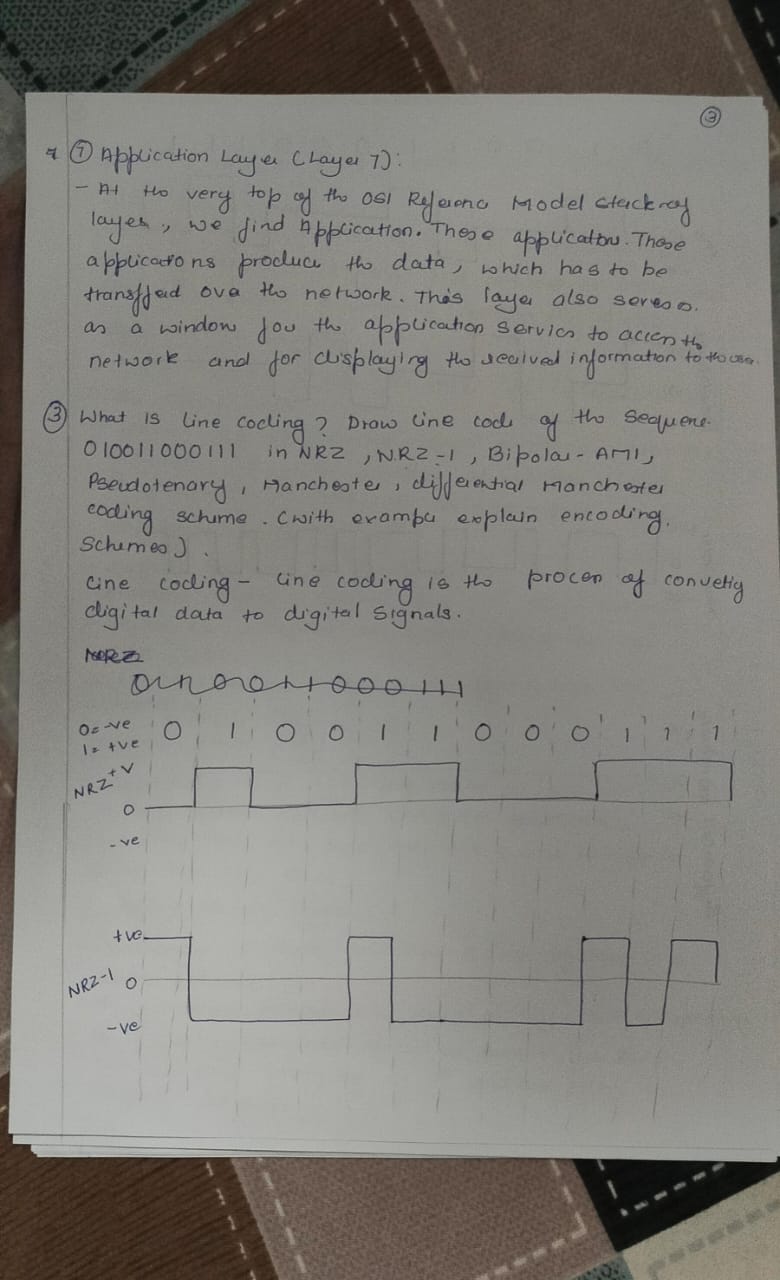 ③
* ⑦ Application Layer (Layer 7):
- At the very top of the OSI Reference Model stack of
layer, we find Application. These application. These
applications produce the data, which has to be
transffed over the network. This layer also serves
as a window for the application services to access the
network and for displaying the recived information to the user.
③ What is line coding? Draw line code of the sequence
010011000111 in NRZ, NRZ-1, Bipolar-AMI,
Pseudotenary, Manchester, differential Manchester
coding scheme. (with example explain encoding.
Schemes).
Line coding - Line coding is the process of convetig
digital data to digital signals.
NRZ
010011000111
0 = -ve 0 1 0 0 1 1 0 0 0 1 1 1
1 = +ve
NRZ +V
0
-ve
+ve
NRZ-1 0
-ve